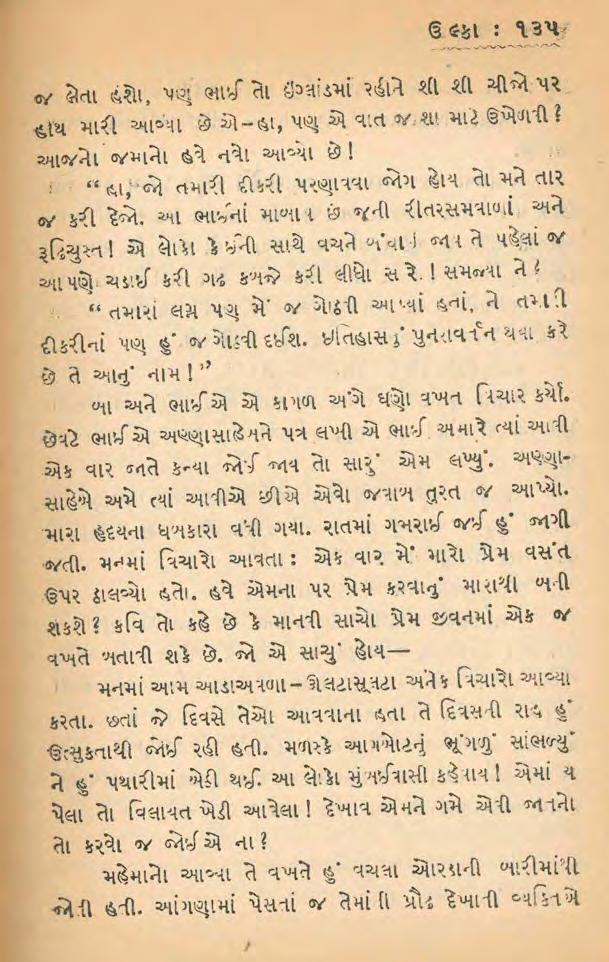 ઉલ્કા : ૧૩૫
જ લેતા હશો, પણ ભાઈ તો ઇંગ્લાંડમાં રહીને શી શી ચીજો પર
હાથ મારી આવ્યા છે એ–હા, પણ એ વાત જ શા માટે ઉખેળવી ?
આજનો જમાનો હવે નવો આવ્યો છે !
“ હા, જો તમારી દીકરી પરણાવવા જોગ હોય તો મને તાર
જ કરી દેજો. આ ભાઈનાં માબાપ છે જૂની રીતરસમવાળાં અને
રૂઢિચુસ્ત ! એ લોકો કોઈની સાથે વચને બંધાઈ જાય તે પહેલાં જ
આપણે ચડાઈ કરી ગઢ કબજે કરી લીધો સારો ! સમજ્યા ને ?
“ તમારાં લગ્ન પણ મેં જ ગોઠવી આપ્યાં હતાં, ને તમારી
દીકરીનાં પણ હું જ ગોઠવી દઈશ. ઇતિહાસનું પુનરાવર્તન થયા કરે
છે તે આનું નામ !”
બા અને ભાઈએ એ કાગળ અંગે ઘણો વખત વિચાર કર્યો.
છેવટે ભાઈએ અણ્ણાસાહેબને પત્ર લખી એ ભાઈ અમારે ત્યાં આવી
એક વાર જાતે કન્યા જોઈ જાય તો સારું એમ લખ્યું. અણ્ણા-
સાહેબે અમે ત્યાં આવીએ છીએ એવો જવાબ તુરત જ આપ્યો.
મારા હૃદયના ધબકારા વધી ગયા. રાતમાં ગભરાઈ જઈ હું જાગી
જતી. મનમાં વિચારો આવતા : એક વાર મેં મારો પ્રેમ વસંત
ઉપર ઢાલવ્યો હતો. હવે એમના પર પ્રેમ કરવાનું મારાથી બની
શકશે ? કવિ તો કહે છે કે માનવી સાચો પ્રેમ જીવનમાં એક જ
વખતે બતાવી શકે છે. જો એ સાચું હોય—
મનમાં આમ આડાઅવળા – ઊલટાસૂલટા અનેક વિચારો આવ્યા
કરતા. છતાં જે દિવસે તેઓ આવવાના હતા તે દિવસની રાહ હું
ઉત્સુકતાથી જોઈ રહી હતી. મળસ્કે આગબોટનું ભૂંગળું સાંભળ્યું
ને હું પથારીમાં બેઠી થઈ. આ લોકો મુંબઈવાસી કહેવાય ! એમાં ય
પેલા તો વિલાયત ખેડી આવેલા ! દેખાવ એમને ગમે એવી જાતનો
તો કરવો જ જોઈએ ના ?
મહેમાનો આવ્યા તે વખતે હું વચલા ઓરડાની બારીમાંથી
જોતી હતી. આંગણામાં પેસતાં જ તેમાંની પ્રૌઢ દેખાતી વ્યક્તિએ